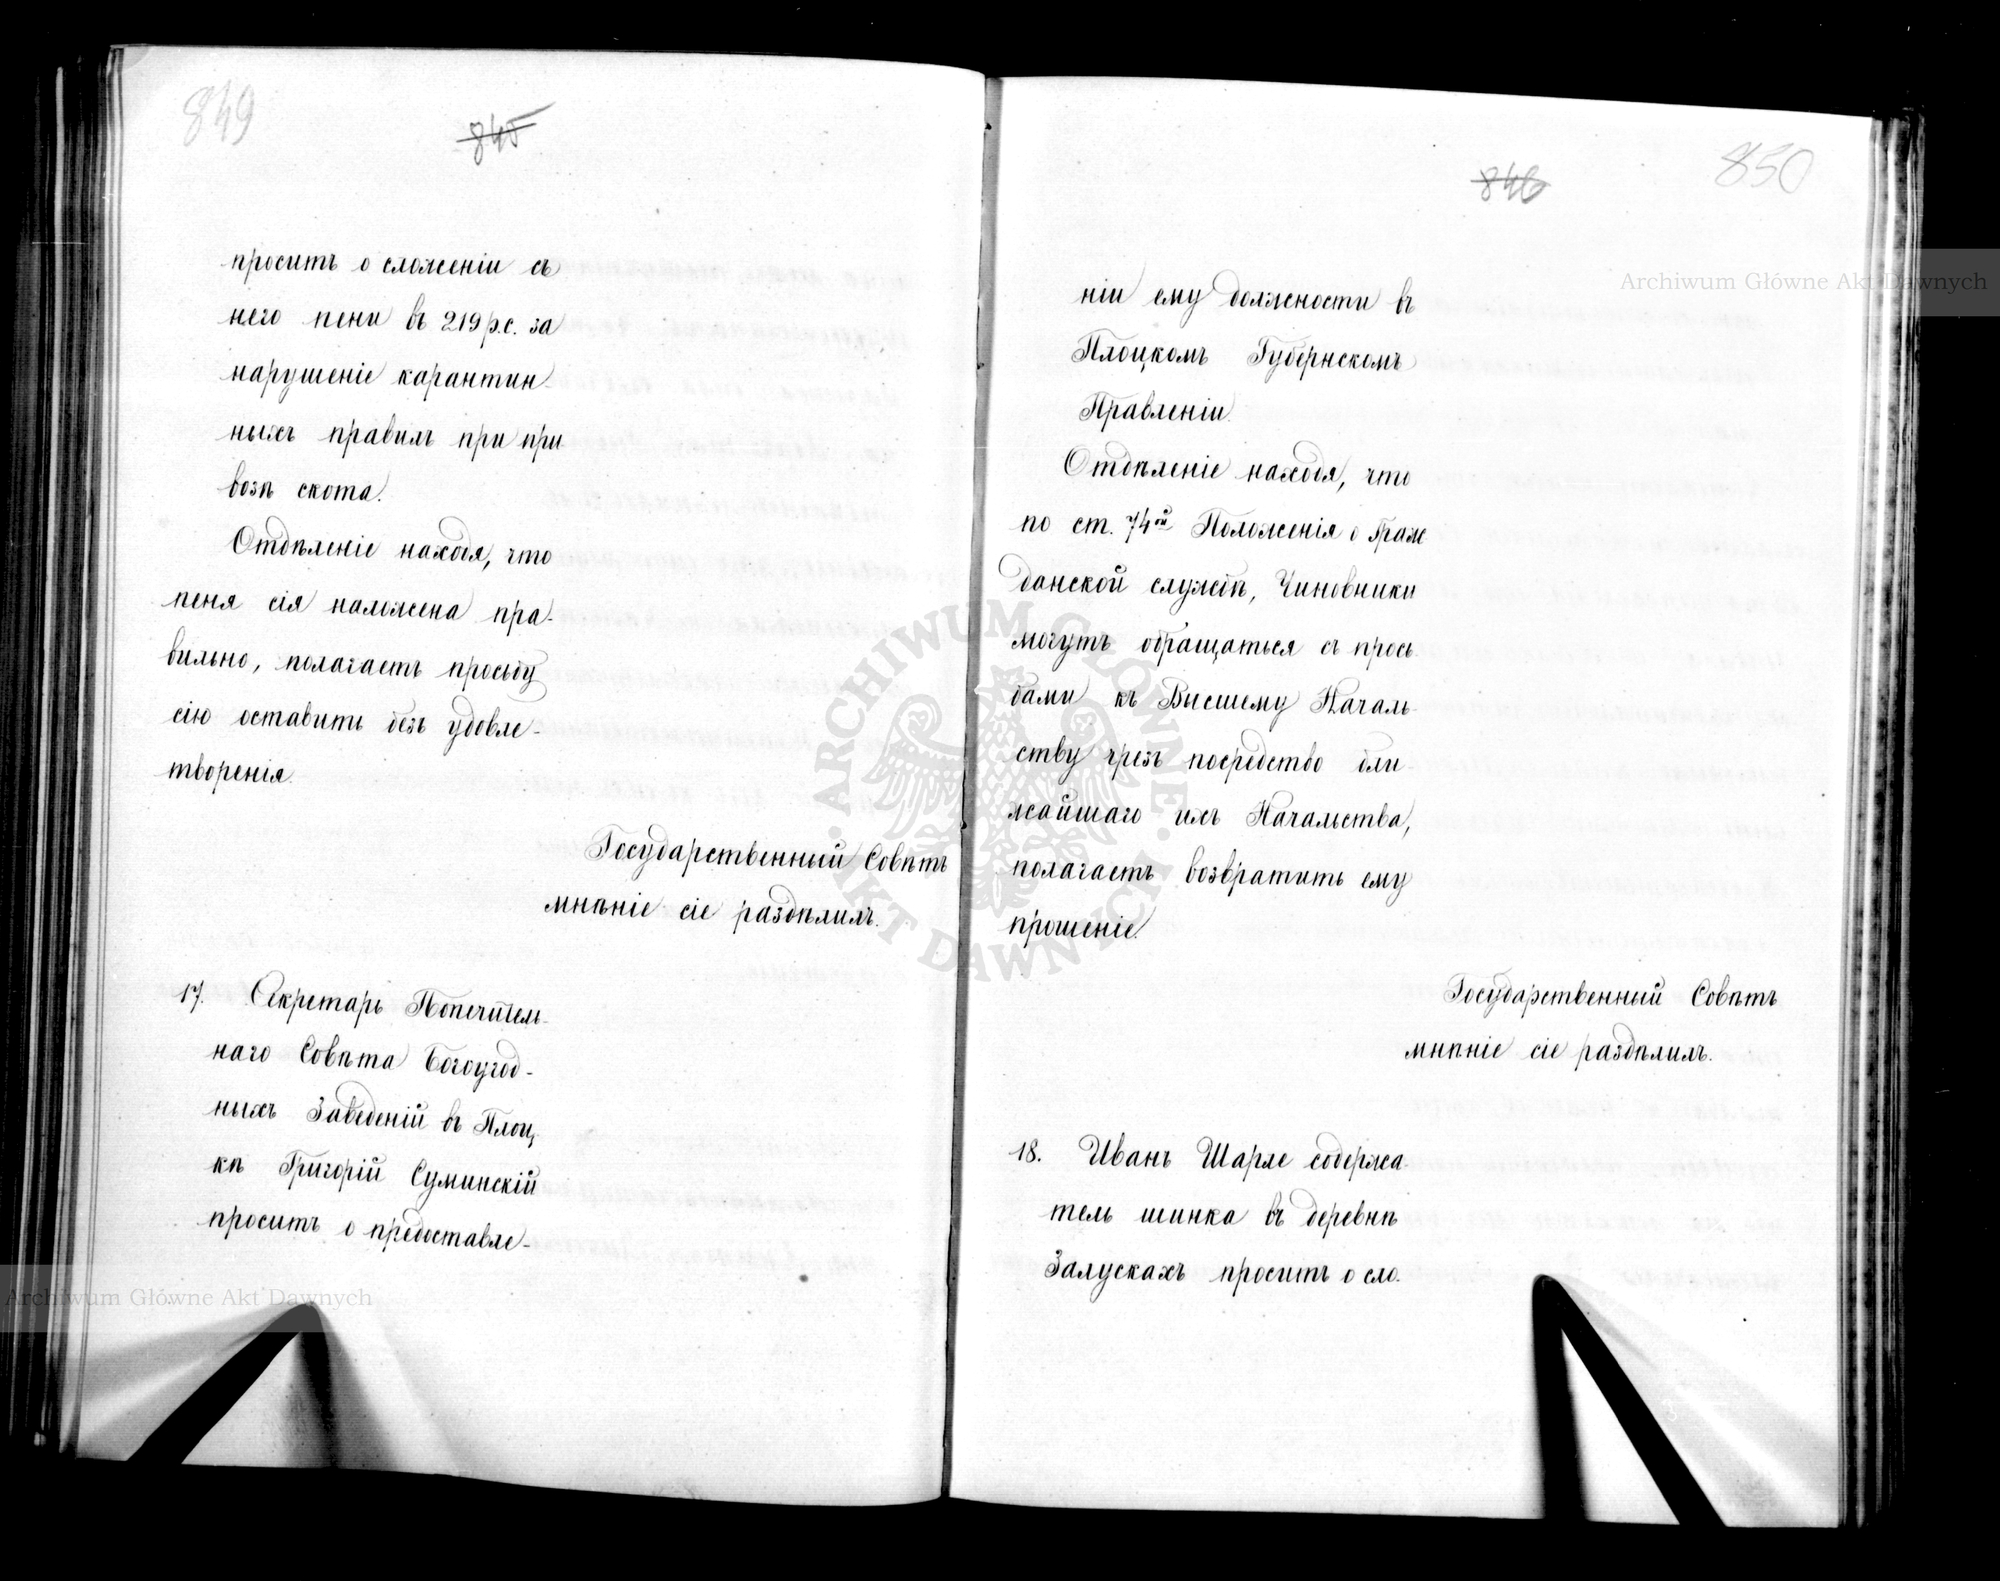 849
845
проситъ о сложеніи съ
него пени въ 219 р.с. за
нарушеніе карантин-
ныхъ правилъ при при
возѣ скота.
Отдѣленіе находя, что
пеня сія наложена пра-
вильно, полагаетъ просьбу
сію оставить безъ удовле-
творенія.
Государственный Совѣтъ
мнѣніе сіе раздѣлилъ.
17. Секретарь Попечитель-
наго Совѣта Богоугод-
ныхъ Заведеній въ Плоц-
кѣ Григорій Суминскій
проситъ о предоставле-
850
846
ніи ему должности въ
Плоцкомъ Губернскомъ
Правленіи.
Отдѣленіе находя, что
по ст. 74й Положенія о Граж
данской службѣ, Чиновники
могутъ обращаться съ прось
бами къ Высшему Началь-
ству чрезъ посредство бли
жайшаго ихъ Начальства,
полагаетъ возвратить ему
прошеніе.
Государственный Совѣтъ
мнѣніе сіе раздѣлилъ.
18. Иванъ Шарле содержа-
тель шинка въ деревнѣ
Залускахъ проситъ о сло-
Archiwum Główne Akt Dawnych
Archiwum Główne Akt Dawnych
ARCHIWUM GŁÓWNE AKT DAWNYCH